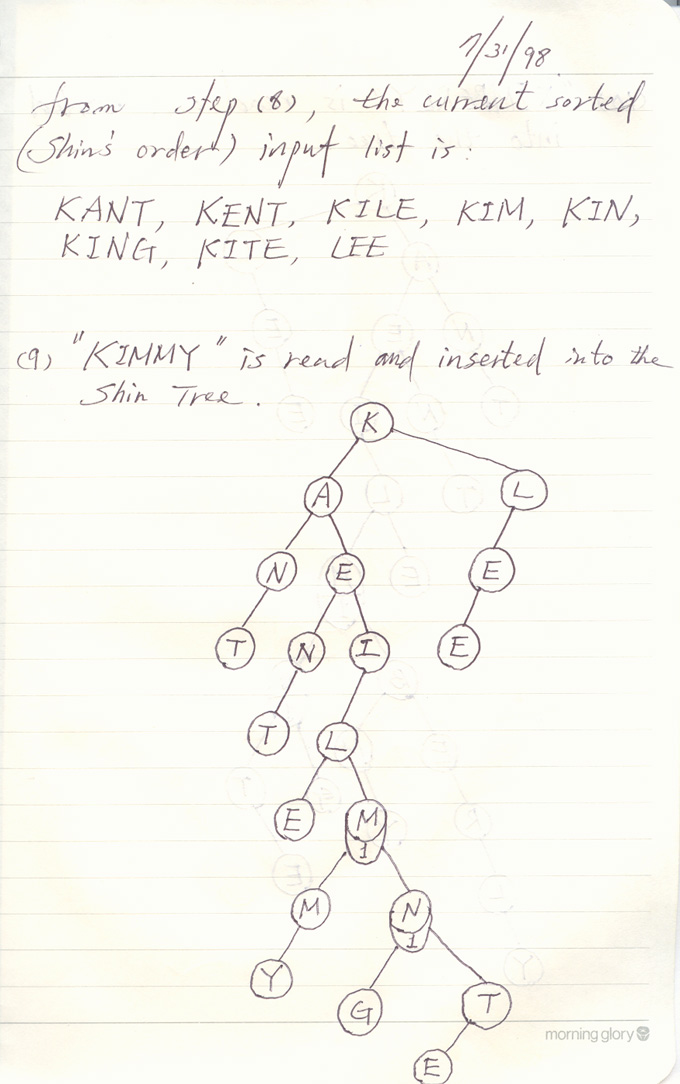 7/31/98
from step (8), the current sorted
(Shin's order) input list is:
KANT, KENT, KILE, KIM, KIN,
KING, KITE, LEE
(9) "KIMMY" is read and inserted into the
Shin Tree.
K
A L
N E E
T N I E
T L
E M
1
M N
1
Y G T
E
morning glory